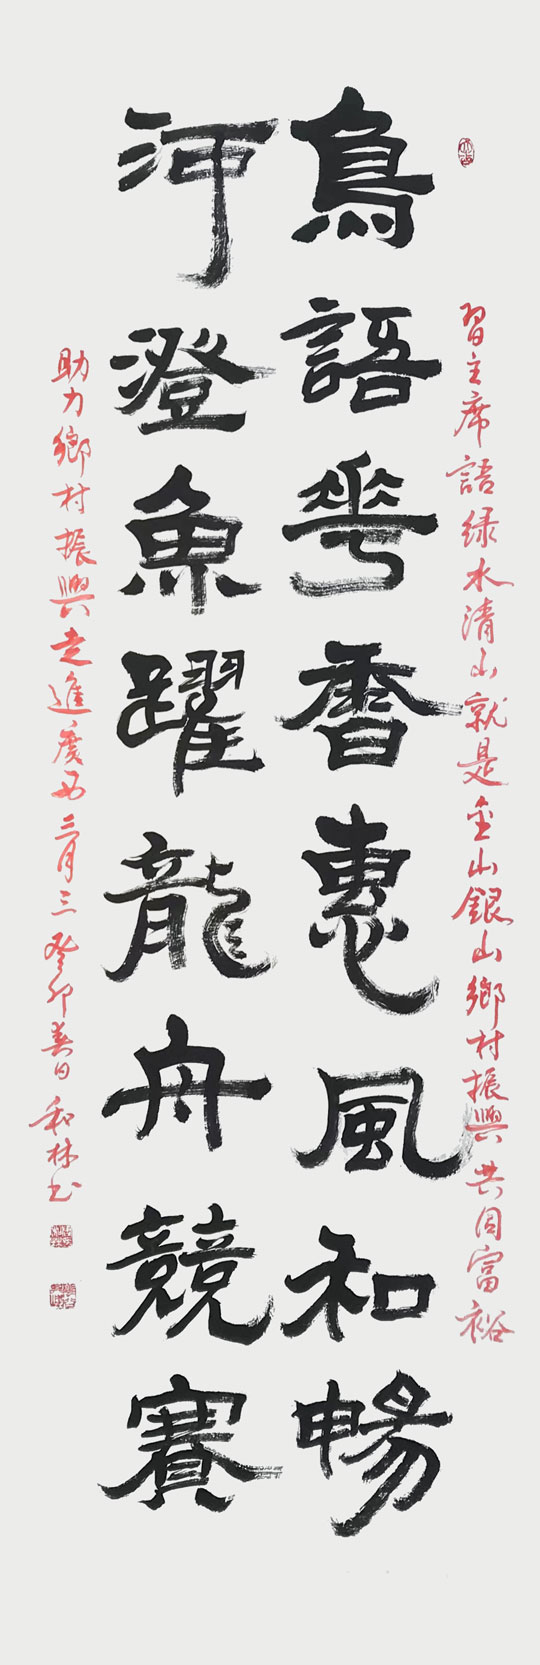 習主席語绿水清山就是金山銀山鄉村振興共同富裕
鳥語花香惠風和暢
河澄魚躍龍舟競賽
助力鄉村振興走進廣西三月三癸卯春日和林书